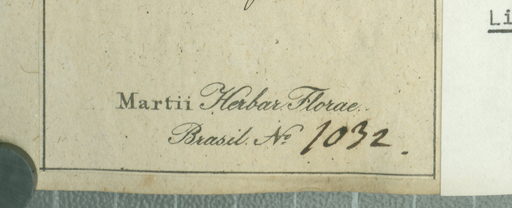 Li
Martii Herbar. Florae
Brasil. No 1032.